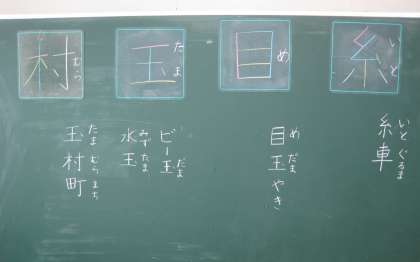 糸
いと
目
め
玉
たま
村
むら
糸車
いとぐるま
目玉やき
めだま
ビー玉
だま
水玉
みずたま
玉村町
たまむらまち